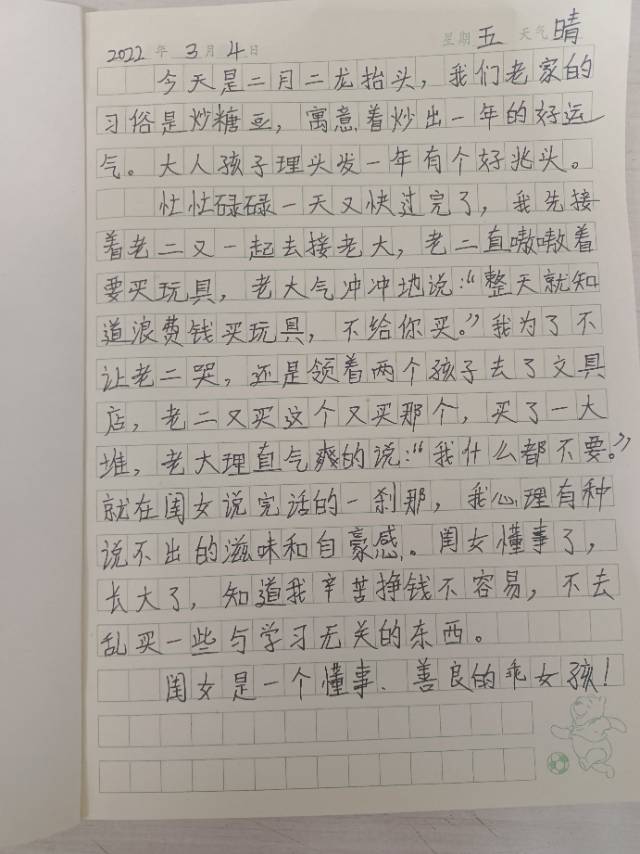 2022年3月4日 星期五 天气晴
今天是二月二龙抬头，我们老家的
习俗是炒糖豆，寓意着炒出一年的好运
气。大人孩子理头发一年有个好兆头。
忙忙碌碌一天又快过完了，我先接
着老二又一起去接老大，老二直嗷嗷着
要买玩具，老大气冲冲地说：“整天就知
道浪费钱买玩具，不给你买。”我为了不
让老二哭，还是领着两个孩子去了文具
店，老二又买这个又买那个，买了一大
堆，老大理直气爽的说：“我什么都不要。”
就在闺女说完话的一刹那，我心理有种
说不出的滋味和自豪感。闺女懂事了，
长大了，知道我辛苦挣钱不容易，不去
乱买一些与学习无关的东西。
闺女是一个懂事、善良的乖女孩！